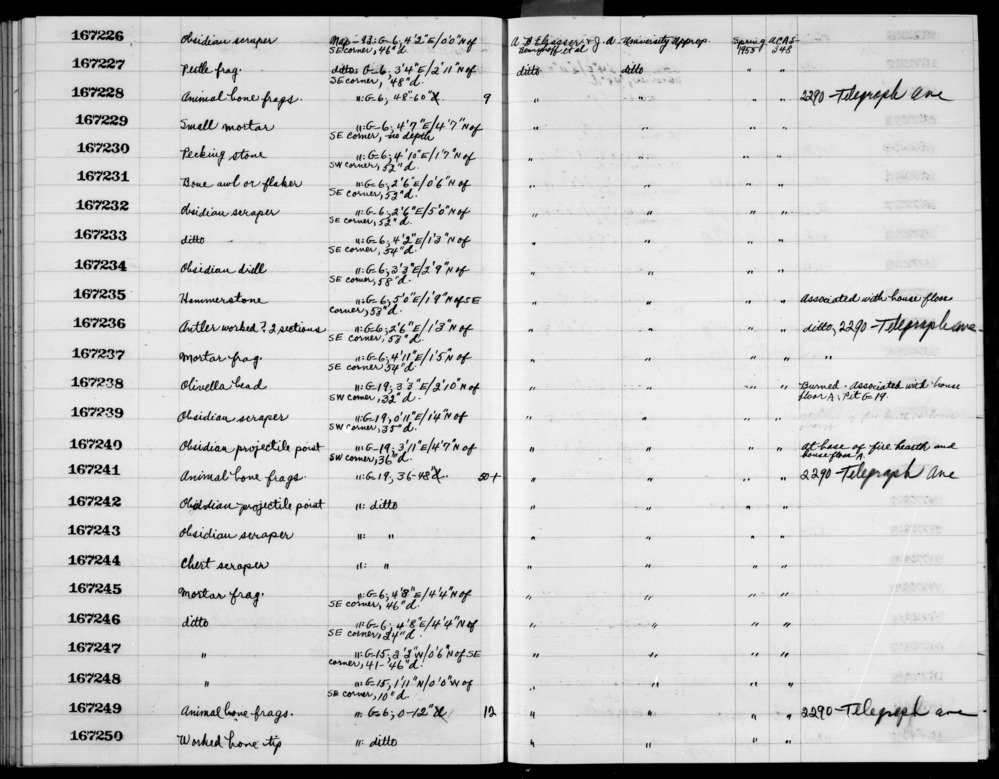 167226 Obsidian scraper Map-93: G-6; 4'2"E/0'0"N of A. B. Elsasser & J. A. University Approp. Spring ACAS-
SE corner, 46"d. et al 1955 348
167227 Pestle frag. ditto: G-6; 3'4"E/2'11"N of ditto ditto " "
SE corner, 48"d.
167228 Animal bone frags. ": G-6, 48-60"d. 9 " " " " 2290 - Telegraph Ave
167229 Small mortar ": G-6; 4'7"E/4'7"N of " " " "
SE corner, no depth
167230 Pecking stone ": G-6; 4'10"E/1'7"N of " " " "
SW corner, 52"d.
167231 Bone awl or flaker ": G-6; 2'6"E/0'6"N of " " " "
SE corner, 53"d.
167232 Obsidian scraper ": G-6; 2'6"E/5'0"N of " " " "
SE corner, 52"d.
167233 ditto ": G-6; 4'2"E/1'3"N of " " " "
SE corner, 54"d.
167234 Obsidian drill ": G-6; 3'3"E/2'9"N of " " " "
SE corner, 58"d.
167235 Hammerstone ": G-6; 5'0"E/1'9"N of SE " " " " Associated with house floor
corner, 53"d.
167236 Antler worked? 2 sections ": G-6; 2'6"E/1'3"N of " " " " ditto, 2290 - Telegraph ave
SE corner, 53"d.
167237 Mortar frag. ": G-6; 4'11"E/1'5"N of " " " " "
SE corner 54"d.
167238 Olivella bead ": G-19; 3'3"E/2'10"N of " " " " Burned - Associated with house
SW corner, 32"d. floor A; Pit G-19.
167239 Obsidian scraper ": G-19; 0'11"E/1'4"N of " " " "
SW corner, 35"d.
167240 Obsidian projectile point ": G-19; 3'1"E/4'7"N of " " " " At base of fire hearth and
SW corner, 36"d. house floor A.
167241 Animal bone frags. ": G-19, 36-48"d. 50+ " " " " 2290 - Telegraph Ave
167242 Obsidian projectile point ": ditto " " " "
167243 Obsidian scraper ": " " " " "
167244 Chert scraper ": " " " " "
167245 Mortar frag. ": G-6; 4'8"E/4'4"N of " " " "
SE corner, 46"d.
167246 ditto ": G-6; 4'8"E/4'4"N of " " " "
SE corner, 24"d.
167247 " ": G-15; 2'2"W/0'6"N of SE " " " "
corner, 41-46"d.
167248 " ": G-15; 1'11"N/0'0"W of " " " "
SE corner, 10"d.
167249 Animal bone frags. ": G-6; 0-12"d 12 " " " " 2290 - Telegraph ave
167250 Worked bone tip ": ditto " " " "